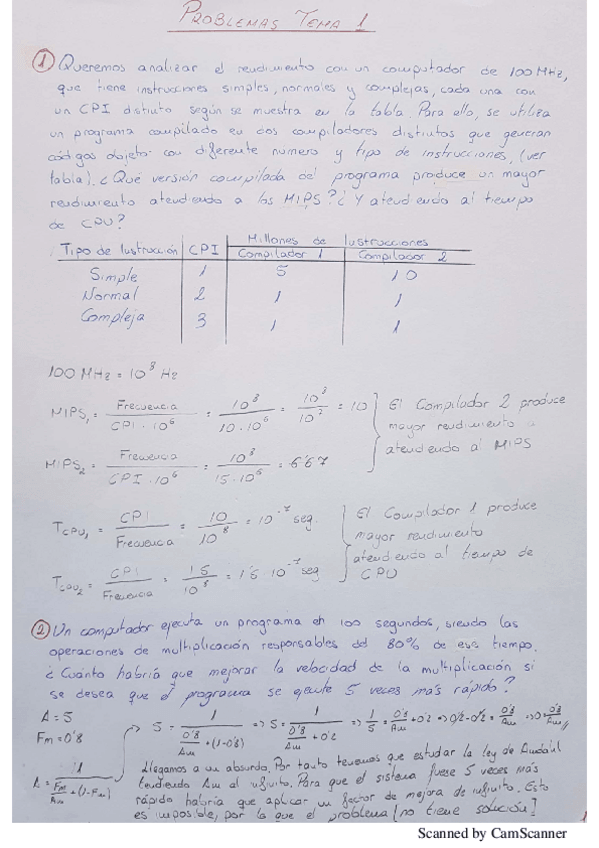 PROBLEMAS TEMA 1
① Queremos analizar el rendimiento con un computador de 100 MHz,
que tiene instrucciones simples, normales y complejas, cada una con
un CPI distinto según se muestra en la tabla. Para ello, se utiliza
un programa compilado en dos compiladores distintos que generan
códigos objeto con diferente numero y tipo de instrucciones, (ver
tabla). ¿Qué versión compilada del programa produce un mayor
rendimiento atendiendo a los MIPS? ¿Y atendiendo al tiempo
de CPU?
Millones de Instrucciones
Tipo de Instrucción CPI Compilador 1 Compilador 2
Simple 1 5 10
Normal 2 1 1
Compleja 3 1 1
100 MHz = 10^8 Hz
MIPS₁ = Frecuencia / CPI · 10^6 = 10^8 / 10 · 10^6 = 10^8 / 10^7 = 10 } El Compilador 2 produce
mayor rendimiento
atendiendo al MIPS
MIPS₂ = Frecuencia / CPI · 10^6 = 10^8 / 15 · 10^6 = 6'67
T CPU₁ = CPI / Frecuencia = 10 / 10^8 = 10^-7 seg. } El Compilador 1 produce
mayor rendimiento
atendiendo al tiempo de
CPU
T CPU₂ = CPI / Frecuencia = 15 / 10^8 = 1'5 10^-7 seg
② Un computador ejecuta un programa en 100 segundos, siendo las
operaciones de multiplicación responsables del 80% de ese tiempo.
¿Cuánto habría que mejorar la velocidad de la multiplicación si
se desea que el programa se ejecute 5 veces más rápido?
A = 5
Fm = 0'8
A = 1 / Fm/Am + (1-Fm)
5 = 1 / 0'8/Am + (1-0'8) => 5 = 1 / 0'8/Am + 0'2 => 1/5 = 0'8/Am + 0'2 => 0'2-0'2 = 0'8/Am => 0 = 0'8/Am
Llegamos a un absurdo. Por tanto tenemos que estudiar la ley de Amdahl
tendiendo Am al infinito. Para que el sistema fuese 5 veces más
rápido habría que aplicar un factor de mejora de infinito. Esto
es imposible, por lo que el problema [no tiene solución]
1
Scanned by CamScanner